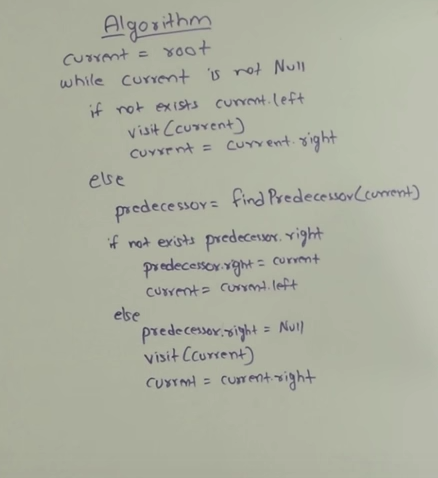 Algorithm
current = root
while current is not Null
if not exists current.left
visit (current)
current = current.right
else
predecessor = find Predecessor (current)
if not exists predecessor.right
predecessor.right = current
current = current.left
else
predecessor.right = Null
visit (current)
current = current.right